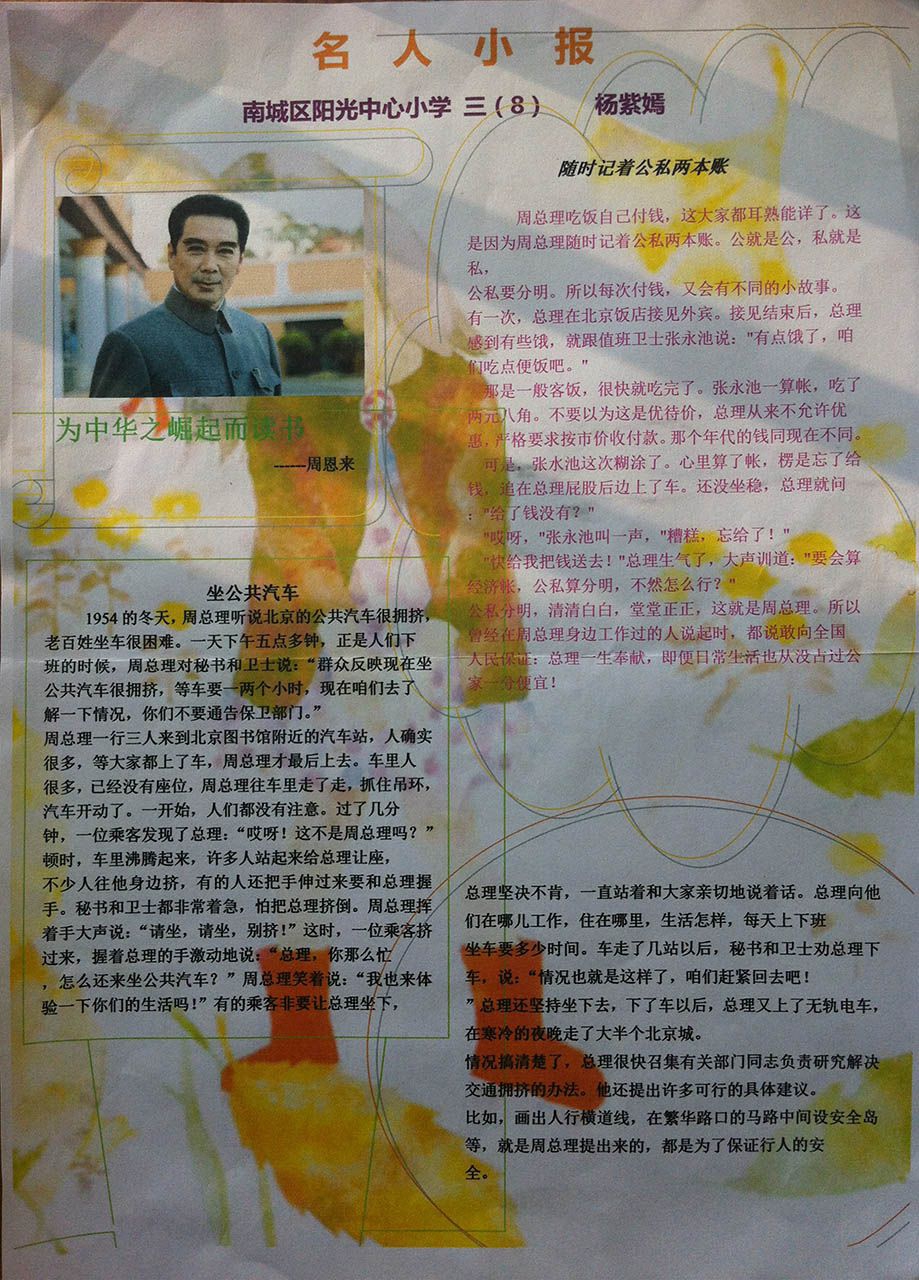 名人小报
南城区阳光中心小学 三(8) 杨紫嫣
为中华之崛起而读书
------周恩来
随时记着公私两本账
周总理吃饭自己付钱，这大家都耳熟能详了。这
是因为周总理随时记着公私两本账。公就是公，私就是
私，
公私要分明。所以每次付钱，又会有不同的小故事。
有一次，总理在北京饭店接见外宾。接见结束后，总理
感到有些饿，就跟值班卫士张永池说："有点饿了，咱
们吃点便饭吧。"
那是一般客饭，很快就吃完了。张永池一算帐，吃了
两元八角。不要以为这是优待价，总理从来不允许优
惠，严格要求按市价收付款。那个年代的钱同现在不同。
可是，张水池这次糊涂了。心里算了帐，楞是忘了给
钱，追在总理屁股后边上了车。还没坐稳，总理就问
："给了钱没有？"
"哎呀，"张永池叫一声，"糟糕，忘给了！"
"快给我把钱送去！"总理生气了，大声训道："要会算
经济帐，公私算分明，不然怎么行？"
公私分明，清清白白，堂堂正正，这就是周总理。所以
曾经在周总理身边工作过的人说起时，都说敢向全国
人民保证：总理一生奉献，即便日常生活也从没占过公
家一分便宜！
坐公共汽车
1954 的冬天，周总理听说北京的公共汽车很拥挤，
老百姓坐车很困难。一天下午五点多钟，正是人们下
班的时候，周总理对秘书和卫士说：“群众反映现在坐
公共汽车很拥挤，等车要一两个小时，现在咱们去了
解一下情况，你们不要通告保卫部门。”
周总理一行三人来到北京图书馆附近的汽车站，人确实
很多，等大家都上了车，周总理才最后上去。车里人
很多，已经没有座位，周总理往车里走了走，抓住吊环，
汽车开动了。一开始，人们都没有注意。过了几分
钟，一位乘客发现了总理：“哎呀！这不是周总理吗？”
顿时，车里沸腾起来，许多人站起来给总理让座，
不少人往他身边挤，有的人还把手伸过来要和总理握
手。秘书和卫士都非常着急，怕把总理挤倒。周总理挥
着手大声说：“请坐，请坐，别挤！”这时，一位乘客挤
过来，握着总理的手激动地说：“总理，你那么忙
，怎么还来坐公共汽车？”周总理笑着说：“我也来体
验一下你们的生活吗！”有的乘客非要让总理坐下，
总理坚决不肯，一直站着和大家亲切地说着话。总理向他
们在哪儿工作，住在哪里，生活怎样，每天上下班
坐车要多少时间。车走了几站以后，秘书和卫士劝总理下
车，说：“情况也就是这样了，咱们赶紧回去吧！
”总理还坚持坐下去，下了车以后，总理又上了无轨电车，
在寒冷的夜晚走了大半个北京城。
情况搞清楚了，总理很快召集有关部门同志负责研究解决
交通拥挤的办法。他还提出许多可行的具体建议。
比如，画出人行横道线，在繁华路口的马路中间设安全岛
等，就是周总理提出来的，都是为了保证行人的安
全。